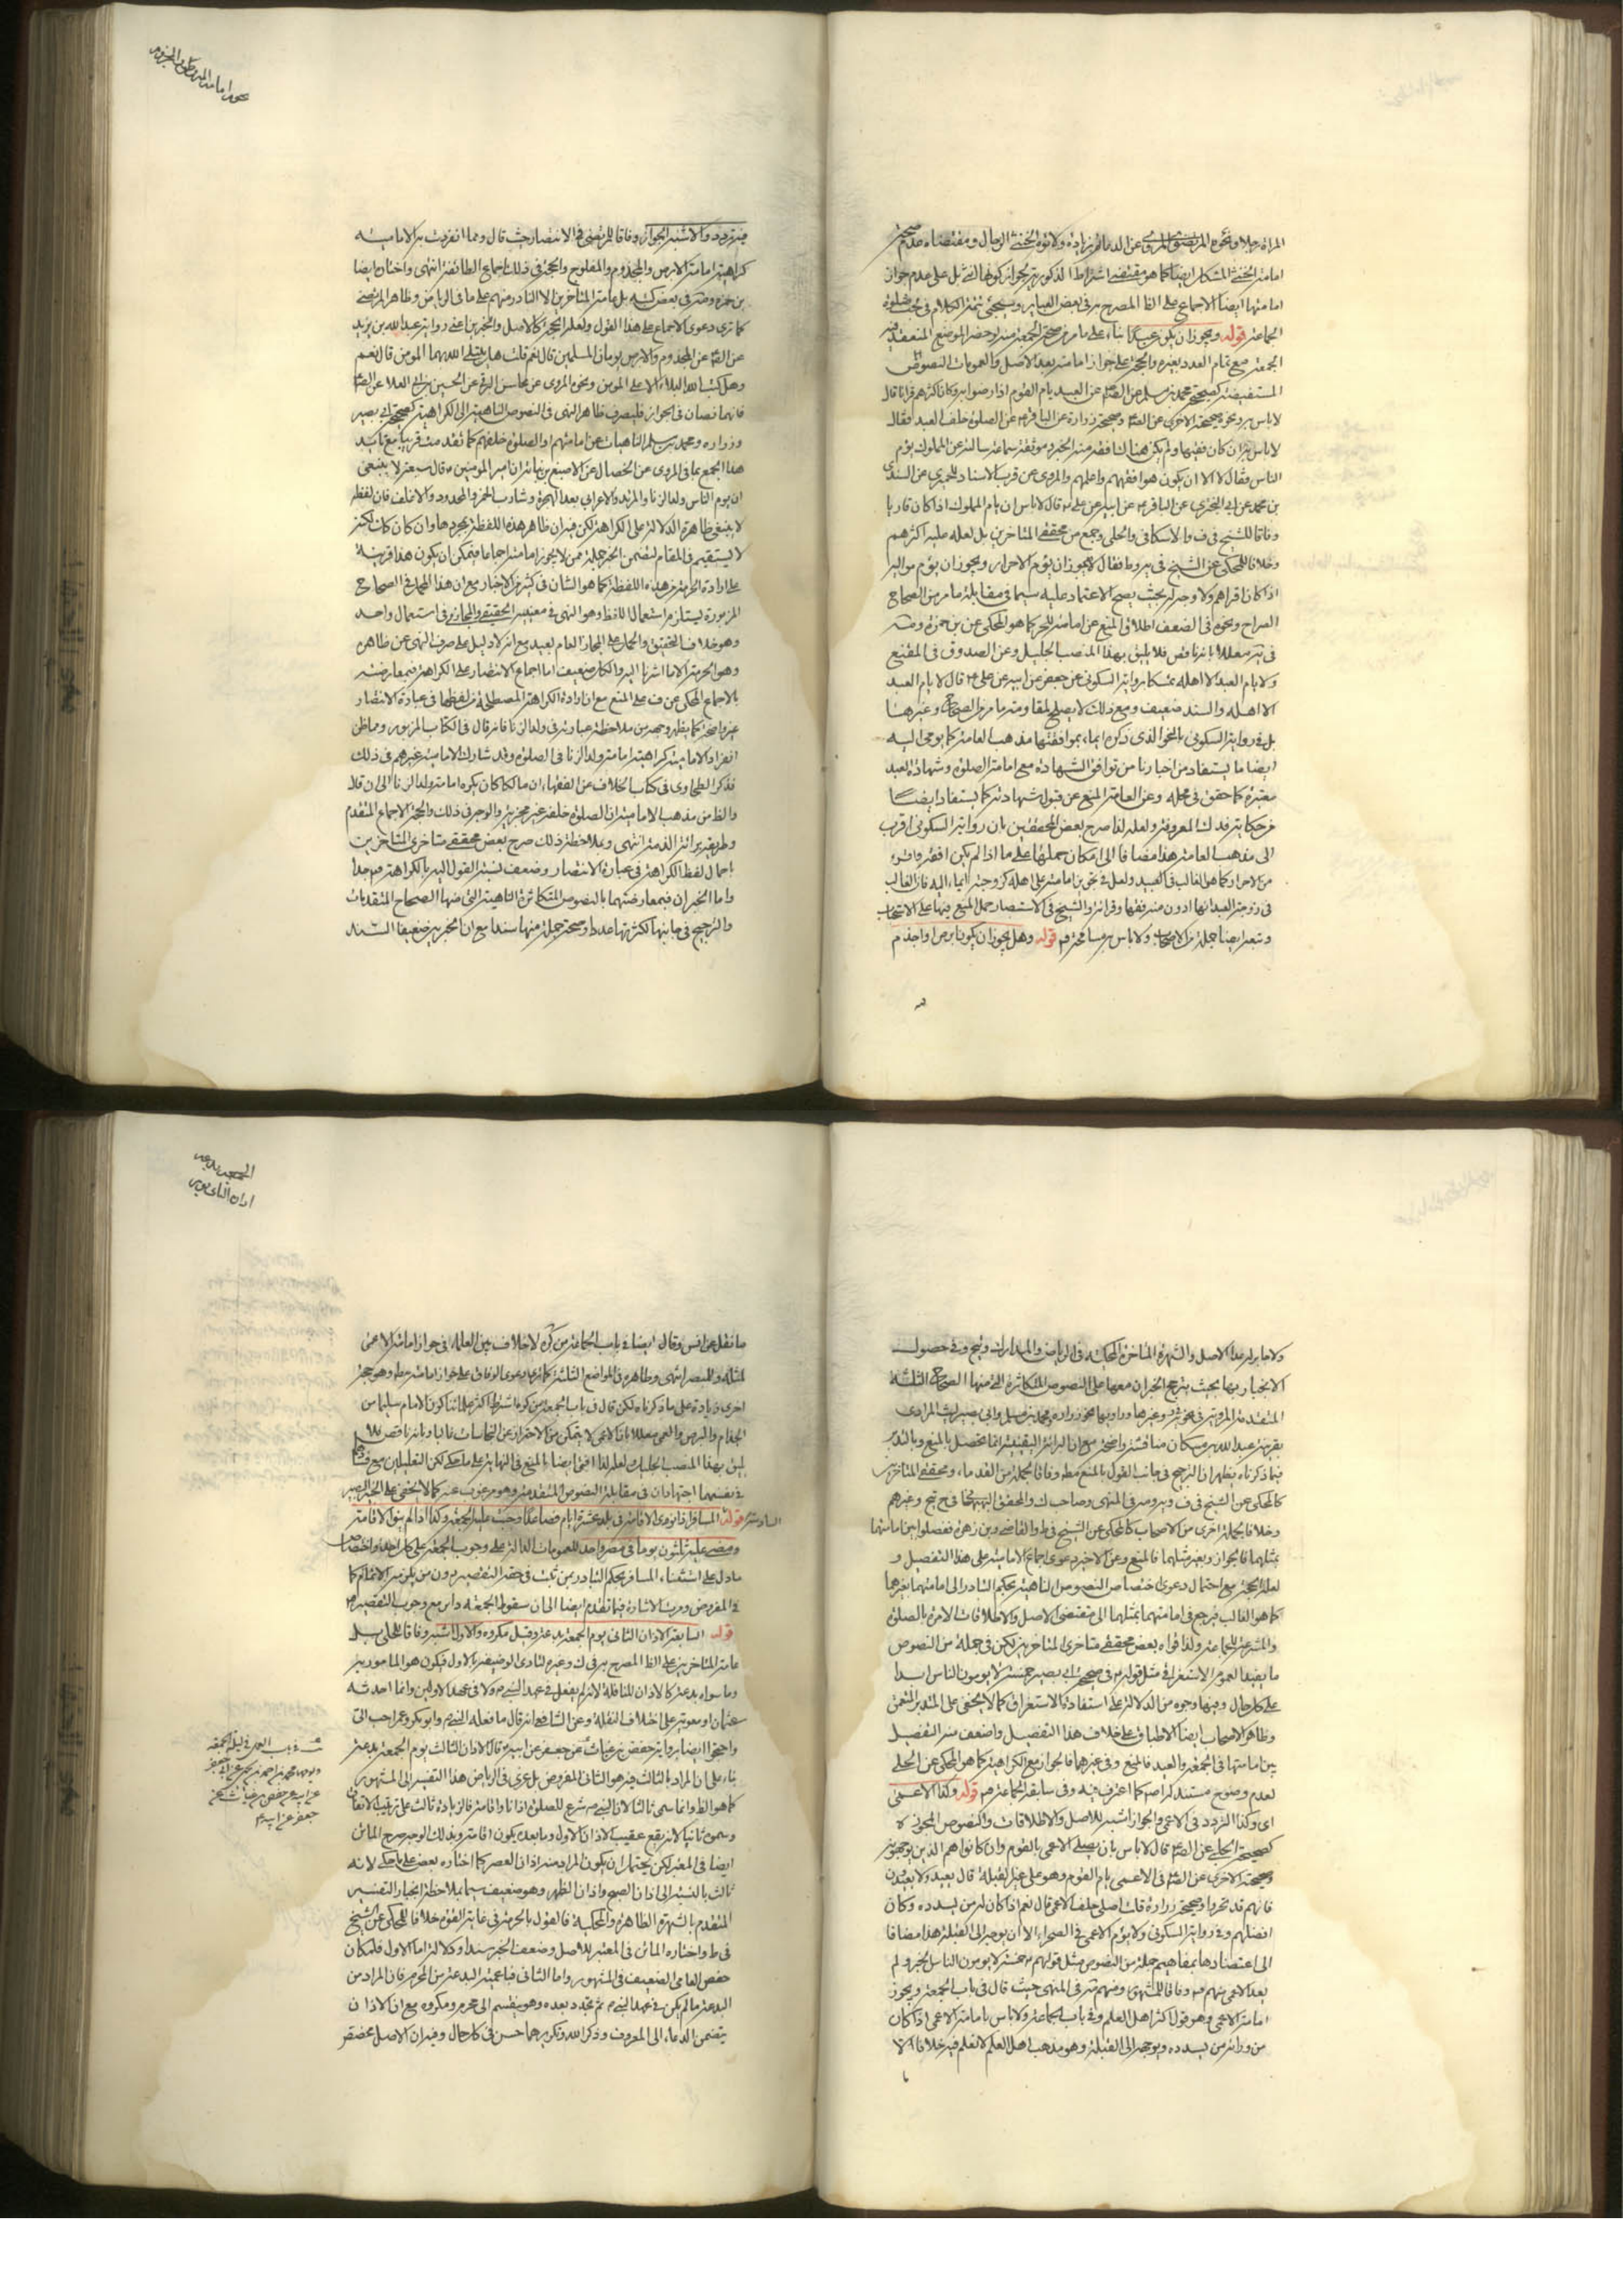 المراة رجلا ونحوه المرتضوي المروي عن الدعائم بزيادة ولا تؤم الخنثى الرجال ومقتضاه عدم صحة
امامة الخنثى المشكل ايضا كما هو مقتضى اشتراط الذكورية لجواز كونها انثى بل على عدم جواز
امامتها ايضا الاجماع على الظ المصرح به في بعض العباير وسيجئ تتمة الكلام في بحث صلوة
الجماعة قوله ويجوز ان يكون عبدا بناء على ما مر من صحة الجمعة منه لو حضر الموضع المنعقد فيه
الجمعة مع تمام العدد بغيره والحجة على جواز امامته بعد الاصل والعمومات النصوص
المستفيضة كصحيحة محمد بن مسلم عن الصادق عن العبد يام القوم اذا رضوا به وكان اكثرهم قرانا قال
لا باس به ونحوه صحيحته الاخرى عن احدهما وصحيحة زرارة عن الباقر عن الصلوة خلف العبد فقال
لا باس به اذا كان فقيها ولم يكن هناك افقه منه الخبر وموثقة سماعة سالته عن المملوك يؤم
الناس فقال لا الا ان يكون هو افقههم واعلمهم والمروي عن قرب الاسناد للحميري عن السندي
بن محمد عن ابي البختري عن الباقر عن ابيه عن علي قال لا باس ان يام المملوك اذا كان قاريا
وفاقا للشيخ في ف والاسكافي والحلي وجمع من محققي المتاخرين بل لعله عليه اكثرهم
وخلافا للمحكي عن الشيخ في يه وط فقال لا يجوز ان يؤم الاحرار ويجوز ان يؤم مواليه
اذا كان اقراهم ولا وجه له بحيث يصح الاعتماد عليه سيما في مقابلة ما مر من الصحاح
الصراح ونحوه في الضعف اطلاق المنع عن امامته للحر كما هو المحكي عن بن حمزة وضه
معللا بانه ناقص فلا يليق بهذا المنصب الجليل وعن الصدوق في المقنع
ولا يام العبد الا اهله تمسكا برواية السكوني عن جعفر عن ابيه عن علي قال لا يام العبد
الا اهله والسند ضعيف ومع ذلك لا يصلح لمقاومة ما مر من الصحاح وغيرها
بل في رواية السكوني بالنحو الذي ذكره ايماء بموافقتها مذهب العامة كما يومى اليه
ايضا ما يستفاد من اخبارنا من توافق الشهادة مع امامة الصلوة وشهادة العبد
معتبرة كما حقق في محله وعن العامة المنع عن قبول شهادته كما يستفاد ايضا
من حكاية فدك المعروفة ولعله لذا صرح بعض المحققين بان رواية السكوني اقرب
الى مذهب العامة هذا مضافا الى امكان حملها على ما اذا لم يكن افقه واقرء
من الاحرار كما هو الغالب في العبيد ولعل في تجويز امامته على اهله كزوجته ايماء اليه فان الغالب
في زوجة العبد انها ادون منه فقها وقرائة والشيخ في الاستبصار حمل المنع فيها على الاستحباب
وتبعه ايضا جملة من الاصحاب ولا باس به مسامحة قوله وهل يجوز ان يكون ابرص او اجذم
جواز امامة الابرص والمجذوم
فيه تردد والاشبه الجواز وفاقا للمرتضى في الانتصار حيث قال ومما انفردت به الامامية
كراهية امامة الابرص والمجذوم والمفلوج والحجة في ذلك اجماع الطائفة انتهى واختاره ايضا
بن حمزة وضه في بعض كتبه بل عامة المتاخرين الا النادر منهم على ما في الرياض وظاهر المرتضى
كما ترى دعوى الاجماع على هذا القول ولعله الحجة كالاصل والخبرين اعني رواية عبد الله بن يزيد
عن الصادق عن المجذوم والابرص يؤمان المسلمين قال نعم قلت هل يبتلي الله بهما المومن قال نعم
وهل كتب الله البلاء الا على المومن ونحوه المروي عن محاسن البرقي عن الحسين بن ابي العلا عن الصادق
فانهما نصان في الجواز فليصرف ظاهر النهي في النصوص الناهية الى الكراهة كصحيحة ابي بصير
وزرارة ومحمد بن مسلم الناهيات عن امامتهم او الصلوة خلفهم كما تقدمت قريبا مع تايد
هذا الجمع بما في المروي عن الخصال عن الاصبغ بن نباتة ان امير المومنين قال ستة لا ينبغي
ان يؤم الناس ولد الزنا والمرتد والاعرابي بعد الهجرة وشارب الخمر والمحدود والاغلف فان لفظة
لا ينبغي ظاهرة الدلالة على الكراهة لكن فيه ان ظاهر هذه اللفظة بمجردها وان كان كذلك لكنه
لا يستقيم في المقام لتضمن الخبر جملة ممن لا يجوز امامته اجماعا فيمكن ان يكون هذا قرينة
على ارادة الحرمة من هذه اللفظة كما هو الشان في كثير من الاخبار مع ان هذا الحمل في الصحاح
المزبورة يستلزم استعمال اللفظ وهو النهي في معنييه الحقيقي والمجازي في استعمال واحد
وهو خلاف التحقيق والحمل على المجاز العام بعيد مع انه لا دليل على صرف النهي عن ظاهره
وهو الحرمة الا ما اشرنا اليه والكل ضعيف اما اجماع الانتصار على الكراهة فبمعارضته
بالاجماع المحكي عن ف على المنع مع ان ارادة الكراهة المصطلحة من لفظها في عبارة الانتصار
غير واضحة كما يظهر وجهه من ملاحظة عبارته في ولد الزنا فانه قال في الكتاب المزبور ومما ظن
انفراد الامامية به كراهية امامة ولد الزنا في الصلوة وقد شارك الامامية غيرهم في ذلك
فذكر الطحاوي في كتاب الخلاف عن الفقهاء ان مالكا كان يكره امامة ولد الزنا الى ان قال
والظ من مذهب الامامية ان الصلوة خلفه غير مجزية والوجه في ذلك والحجة الاجماع المتقدم
وطريقة برائة الذمة انتهى وبملاحظة ذلك صرح بعض محققي متاخري المتاخرين
باجمال لفظ الكراهة في عبارة الانتصار وضعف نسبة القول اليه بالكراهة جدا
واما الخبران فبمعارضتهما بالنصوص المتكاثرة الناهية التي منها الصحاح المتقدمات
والترجيح في جانبها لكثرتها عددا وصحة جملة منها سندا مع ان الخبرين ضعيفا السند
ولا جابر له عدا الاصل والشهرة المتاخرة المحكية في الرياض والمدارك وفي حصول
الانجبار بها بحيث يترجح الخبران معها على النصوص المتكاثرة التي منها الصحاح الثلثة
المتقدمة المروية في وغيرها وراويها نحو زرارة ومحمد بن مسلم وابي بصير ليث المرادي
بقرينة عبد الله بن مسكان مناقشة واضحة مع ان البرائة اليقينية انما تحصل بالمنع وبالتدبر
فيما ذكرناه يظهر ان الترجيح في جانب القول بالمنع مط وفاقا لجملة من القدماء ومحققي المتاخرين
كالمحكي عن الشيخ في ف وية ومه في المنتهى وصاحب ك والمحقق البهبهاني في ح تيح وغيرهم
وخلافا لجملة اخرى من الاصحاب كالمحكي عن الشيخ في ط والقاضي وبن زهرة ففصلوا بين امامتها
بمثلهما فالجواز وبغير مثلهما فالمنع وعن الاخير دعوى اجماع الامامية على هذا التفصيل و
لعله الحجة مع احتمال دعوى اختصاص النصوص الناهية بحكم التبادر الى امامتهما بغيرهما
كما هو الغالب فيرجع في امامتهما بمثلهما الى مقتضى الاصل والاطلاقات الامرة بالصلوة
والمشرعة للجماعة ولذا قواه بعض محققي متاخري المتاخرين لكن في جملة من النصوص
ما يفيد العموم الاستغراقي مثل قوله في صحيحة ابي بصير خمسة لا يؤمون الناس ابدا
على كل حال وفيها وجوه من الدلالة على استفادة الاستغراق كما لا يخفى على المتدبر المتعمق
وظاهر الاصحاب ايضا الاطباق على خلاف هذا التفصيل واضعف منه التفصيل
بين امامتها في الجمعة والعيد فالمنع وفي غيرهما فالجواز مع الكراهية كما هو المحكي عن الحلي
لعدم وضوح مستند له اصلا كما اعترف به في سابقه الجماعة قوله وكذا الاعمى
اى وكذا التردد في الاعمى والجواز اشبه للاصل والاطلاقات والنصوص المجوزة
كصحيحة الحلبي عن الصادق قال لا باس بان يصلي الاعمى بالقوم وان كانوا هم الذين يوجهونه
وصحيحته الاخرى عن الصادق في الاعمى يام القوم وهو على غير القبلة قال يعيد ولا يعيدون
فانهم قد تحروا وصحيحة زرارة قلت اصلي خلف الاعمى قال نعم اذا كان له من يسدده وكان
افضلهم وفي رواية السكوني ولا يؤم الاعمى في الصحراء الا ان يوجه الى القبلة هذا مضافا
الى اعتضادها بمفاهيم جملة من النصوص مثل قولهم خمسة لا يؤمون الناس الخبر ولم
يعد الاعمى منهم وفاقا للمشهور ومنهم في المنتهى حيث قال في باب الجمعة ويجوز
امامة الاعمى وهو قول اكثر اهل العلم وفي باب الجماعة ولا باس بامامة الاعمى اذا كان
من ورائه من يسدده ويوجهه الى القبلة وهو مذهب اهل العلم لا نعلم فيه خلافا الا
الجمعة بدعة
اذان الثاني يوم
ما نقل عن انس وقال ايضا في باب الجماعة من كره لا خلاف بين العلماء في جواز امامة الاعمى
لمثله وللمبصر انتهى وظاهره في المواضع الثلثة كما ترى دعوى الوفاق على جواز امامته مط وهو حجة
اخرى زيادة على ما ذكرناه لكن قال في باب الجمعة من كره اشترط اكثر علمائنا كون الامام سليما من
الجذام والبرص والعمى معللا بان الاعمى لا يتمكن من الاحتراز عن النجاسات غالبا وبانه ناقص فلا
يليق بهذا المنصب الجليل ولعله لذا افتى ايضا بالمنع في النهاية على ما حكي لكن التعليلين مع ضعفهما
في نفسهما اجتهادان في مقابلة النصوص المتقدمة وهو مرغوب عنه كما لا يخفى على الخبير البصير
السادسة قوله المسافر اذا نوى الاقامة في بلد عشرة ايام فصاعدا وجبت عليه الجمعة وكذا اذا لم ينو الاقامة
ومضى عليه ثلثون يوما في مصر واحد للعمومات الدالة على وجوب الجمعة على كل احد واختصاص
ما دل على استثناء المسافر بحكم التبادر بمن ثبت في حقه التقصير دون من يلزمه الاتمام كما
في المفروض ومرت الاشارة فيما تقدم ايضا الى ان سقوط الجمعة دائر مع وجوب التقصير
قوله السابعة الاذان الثاني يوم الجمعة بدعة وقيل مكروه والاول اشبه وفاقا للحلي بل
عامة المتاخرين على الظ المصرح به في ك وغيره لتادى الوضيفة بالاول فيكون هو المامور به
وما سواه بدعة كالاذان للنافلة لانه لم يفعل في عهد النبي ولا في عهد الاولين وانما احدثه
عثمان او معوية على اختلاف النقلة وعن الشافعي انه قال ما فعله النبي وابو بكر وعمر احب الى
واحتجوا ايضا برواية حفص بن غياث عن جعفر عن ابيه قال الاذان الثالث يوم الجمعة بدعة
بناء على ان المراد بالثالث فيه هو الثاني المفروض بل عزي في الرياض هذا التفسير الى المشهور
كما هو الظ وانما سمي ثالثا لان النبي شرع للصلوة اذانا واقامة فالزيادة ثالث على ترتيب الاتفاق
وسموه ثانيا لانه يقع عقيب الاذان الاول وما بعده يكون اقامة وبذلك الوجه صرح الماتن
ايضا في المعتبر لكن يحتمل ان يكون المراد منه اذان العصر كما اختاره بعض على ما حكي لانه
ثالث بالنسبة الى اذان الصبح واذان الظهر وهو ضعيف سيما بملاحظة انجبار التفسير
المتقدم بالشهرة الظاهرة والمحكية فالقول بالحرمة في غاية القوة خلافا للمحكي عن الشيخ
في ط واختاره الماتن في المعتبر للاصل وضعف الخبر سندا ودلالة اما الاول فلمكان
حفص العامي الضعيف في المشهور واما الثاني فباعمية البدعة من المحرم فان المراد من
البدعة ما لم يكن في عهد النبي ثم تجدد بعده وهو ينقسم الى محرم ومكروه مع ان الاذان
يتضمن الدعاء الى المعروف وذكر الله وتكريرهما حسن في كل حال وفيه ان الاصل مخصص
في باب العمل في ليلة الجمعة
ويومها محمد بن احمد بن يحيى عن ابي جعفر
عن ابيه عن حفص بن غياث عن
جعفر عن ابيه